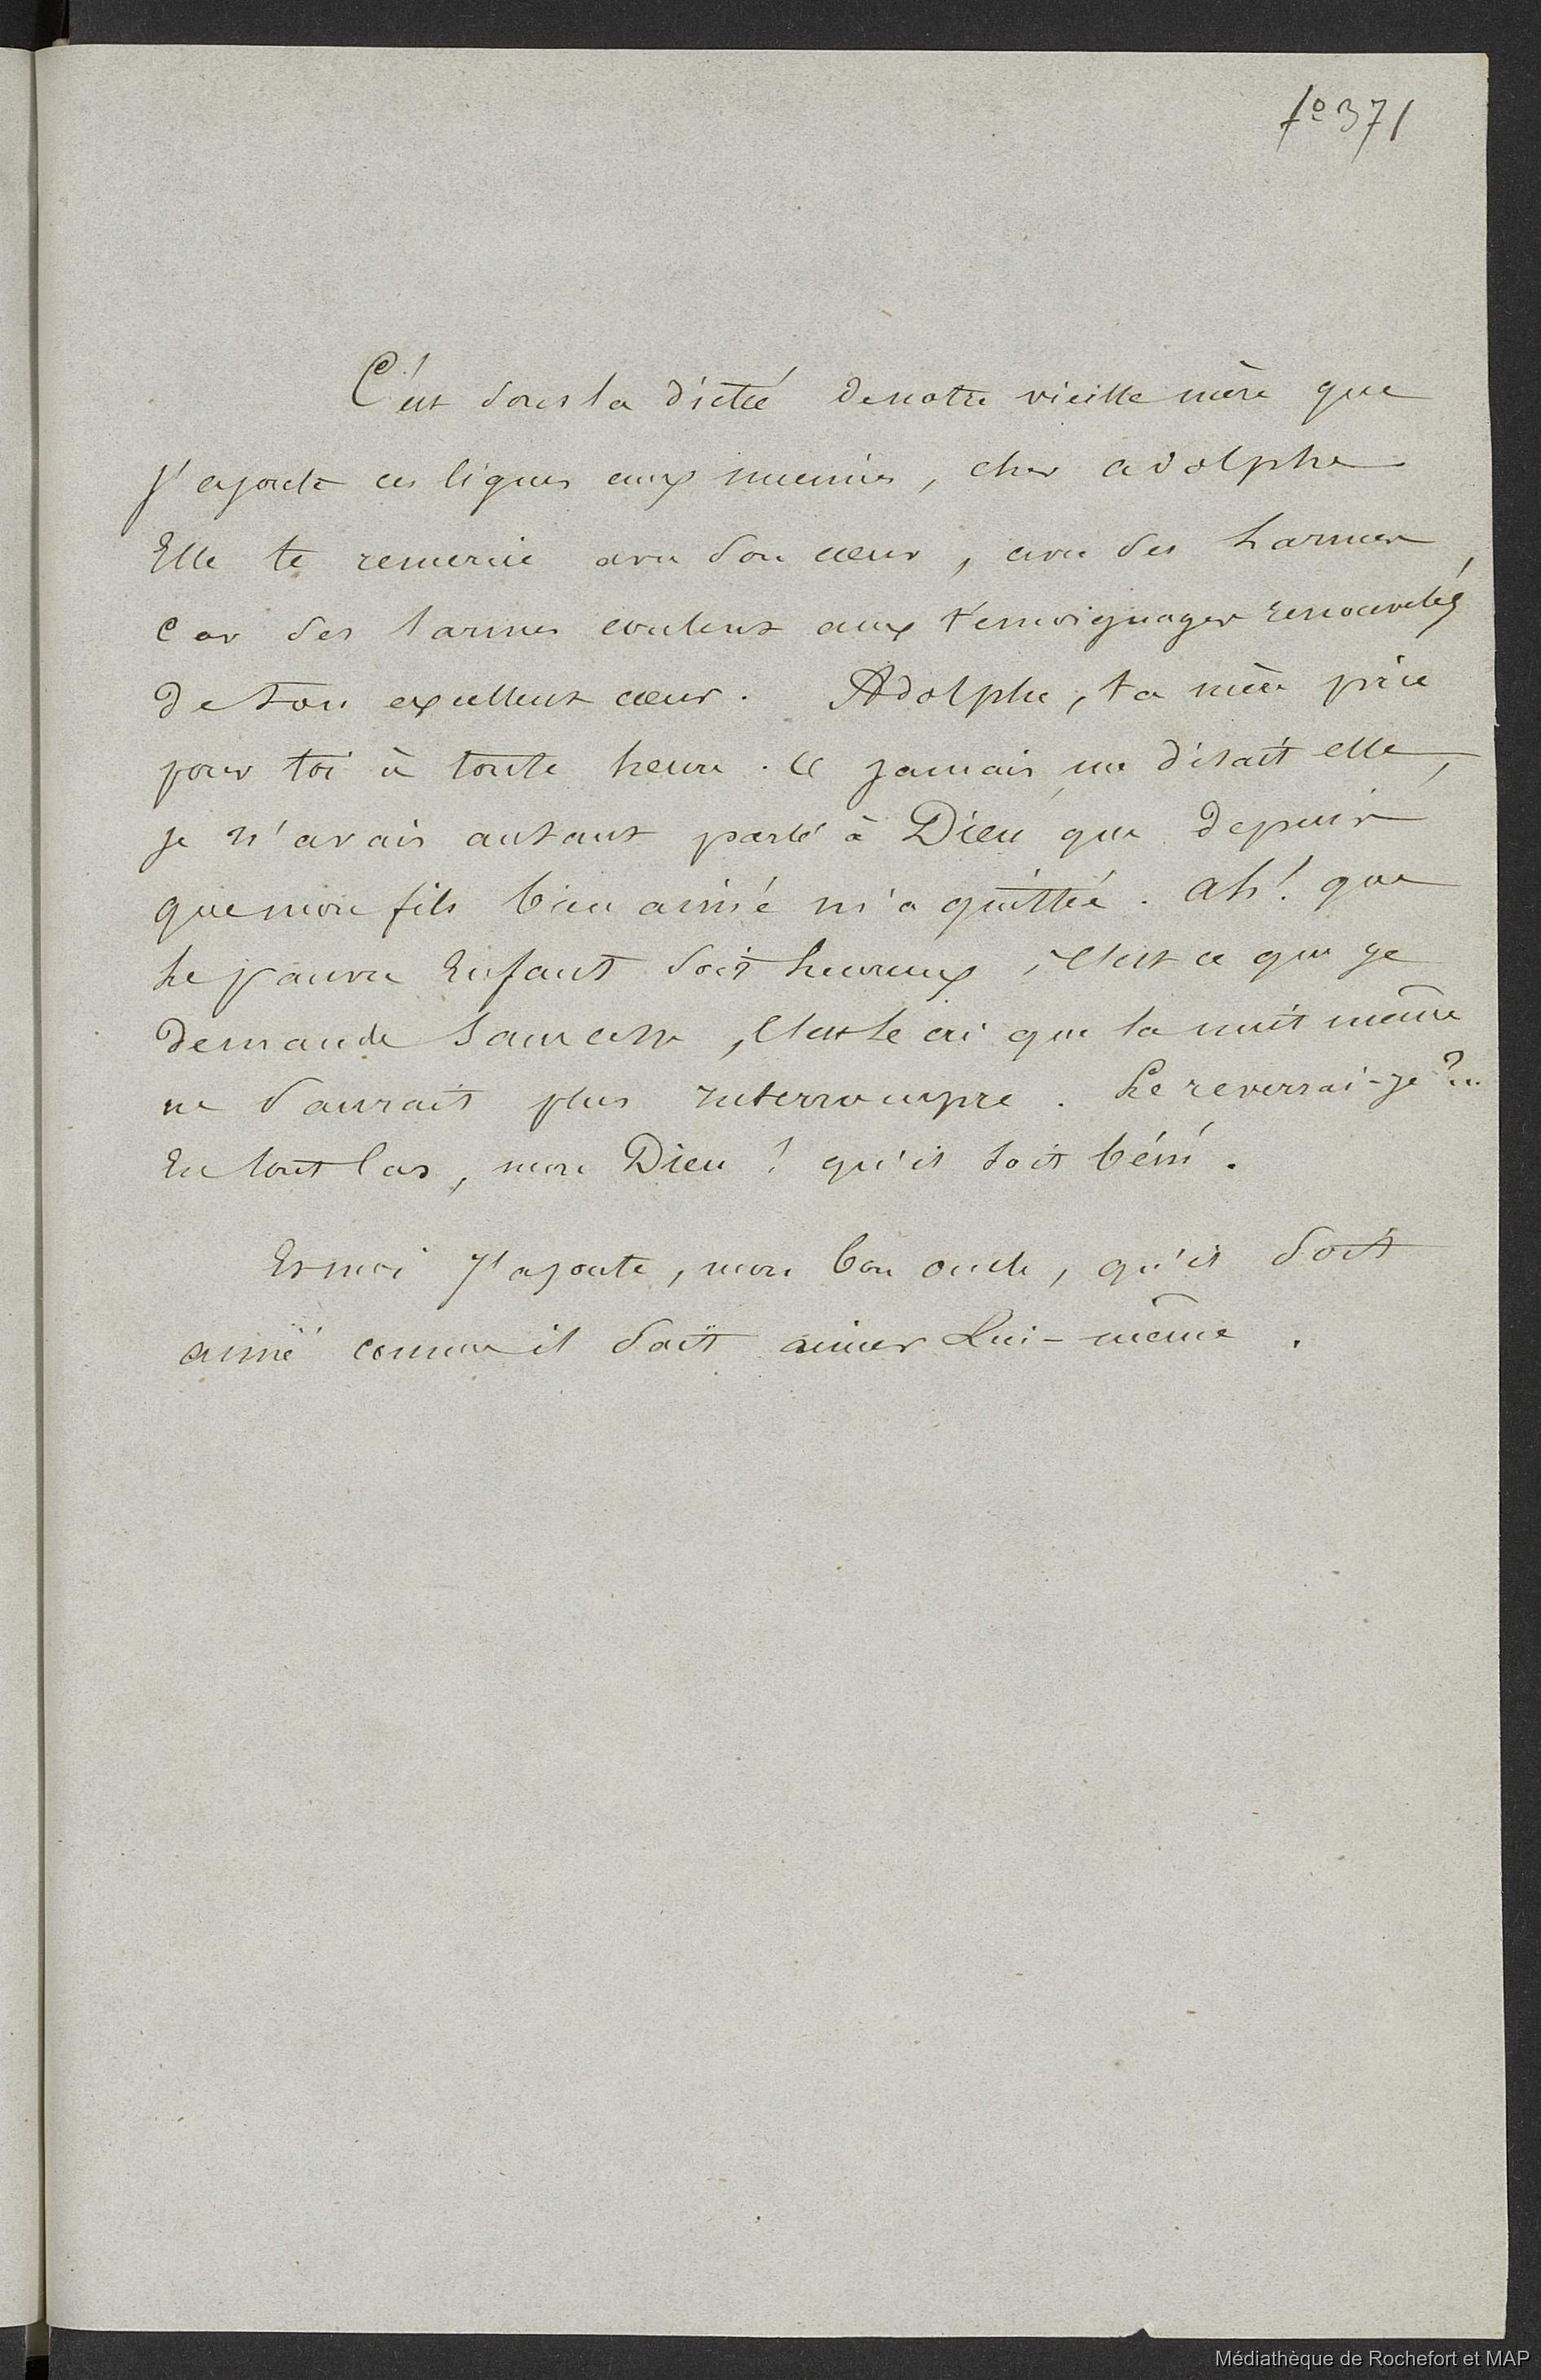 fº 371
C'est sous la dictée de notre vieille mère que
j'ajoute ces lignes aux miennes, cher adolphe
Elle te remercie avec son cœur, avec ses larmes,
Car ses larmes coulent aux témoignages renouvelés
de ton excellent cœur. Adolphe, ta mère prie
pour toi à toute heure. « jamais, me disait elle,
je n'avais autant parlé à Dieu que depuis
que mon fils bien aimé m'a quittée. ah! que
le pauvre Enfant soit heureux, c'est ce que je
demande sans cesse, c'est le cri que la nuit même
ne saurait plus interrompre. Le reverrai-je?...
En tout cas, mon Dieu! qu'il soit béni.
Et moi j'ajoute, mon bon oncle, qu'il soit
aimé comme il sait aimer Lui-même.
Médiathèque de Rochefort et MAP